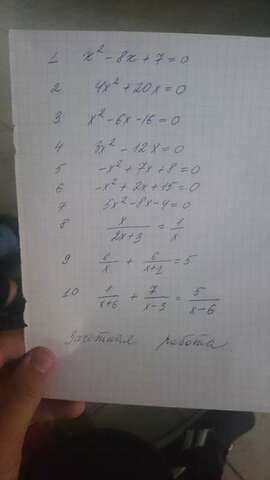 1 x² - 8x + 7 = 0
2 4x² + 20x = 0
3 x² - 6x - 16 = 0
4 3x² - 12x = 0
5 -x² + 7x + 8 = 0
6 -x² + 2x + 15 = 0
7 5x² - 8x - 4 = 0
8 x/(2x+3) = 1/x
9 6/x + 6/(x+1) = 5
10 1/(x+6) + 7/(x-3) = 5/(x-6)
Зачетная работа